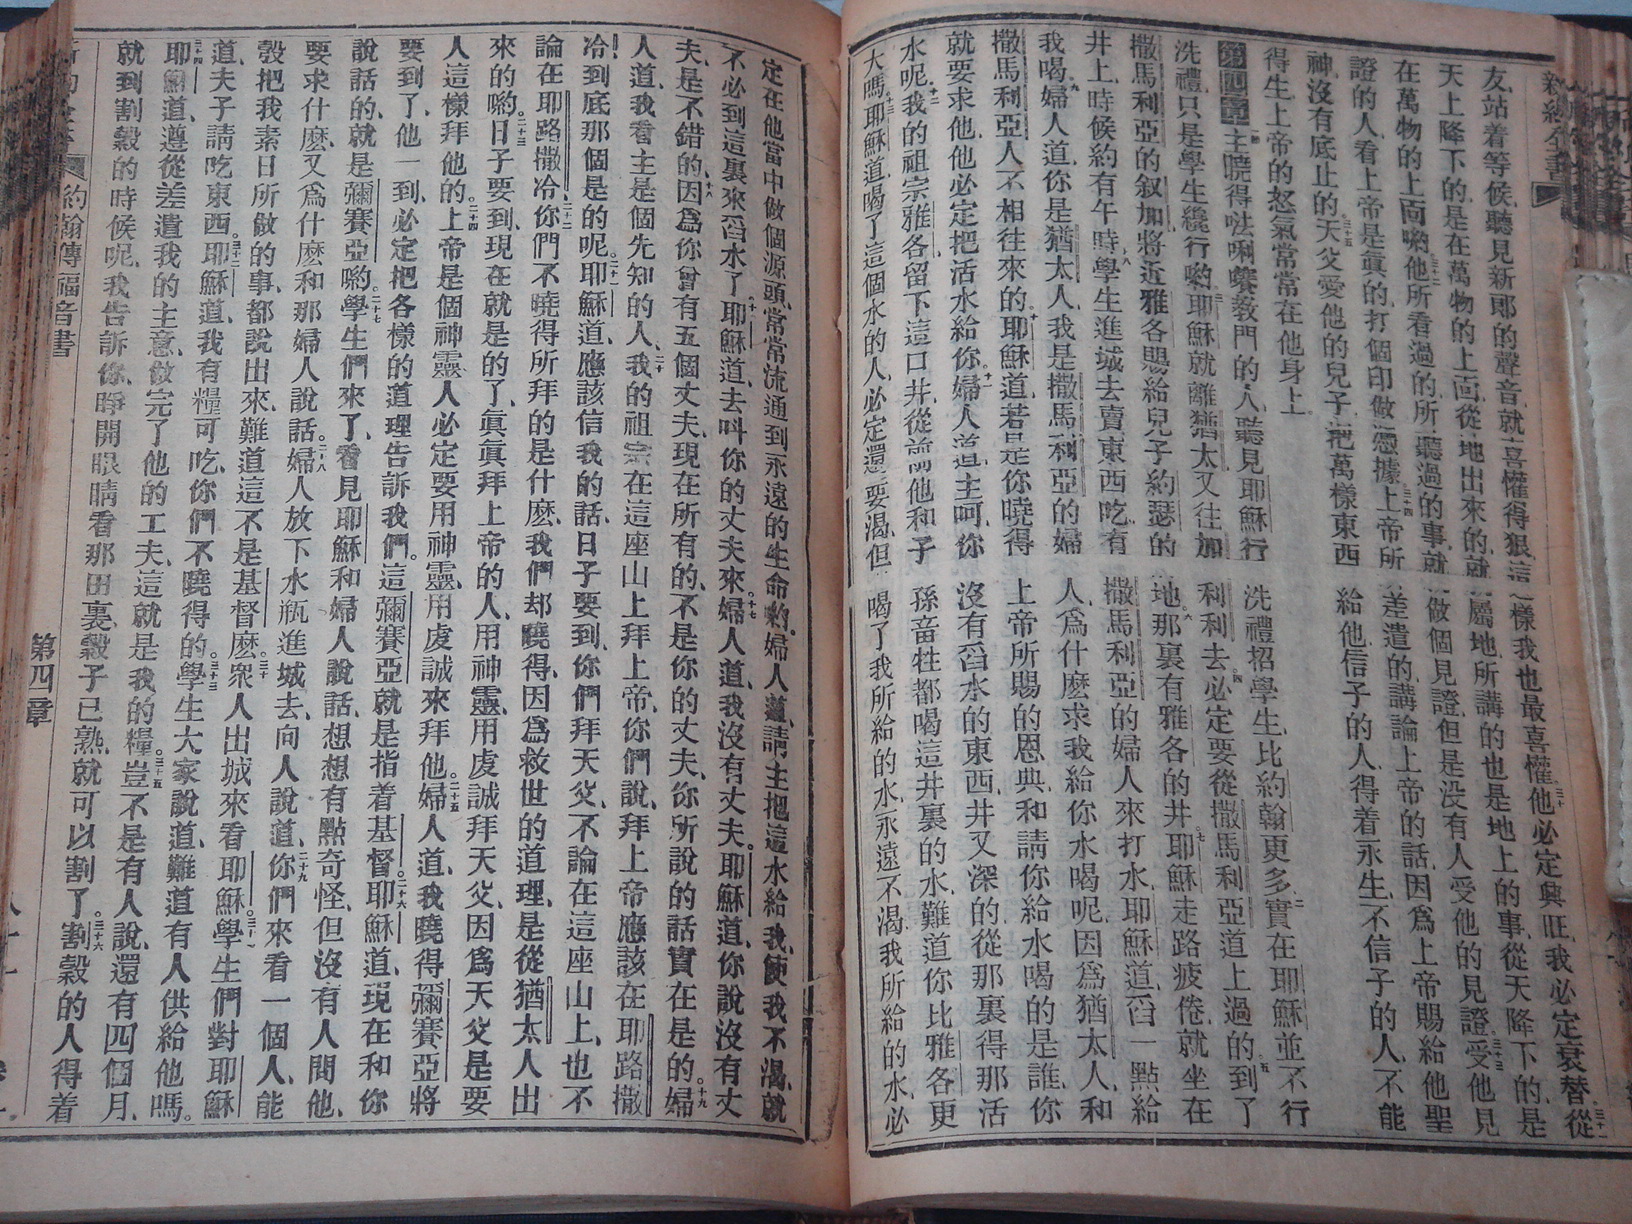 新約全書
友站着等候聽見新郎的聲音就喜懽得狠這樣我也最喜懽他必定興旺我必定衰替從
天上降下的是在萬物的上面從地出來的就屬地所講的也是地上的事從天降下的是
在萬物的上面喲他所看過的所聽過的事就做個見證但是没有人受他的見證受他見
證的人看上帝是眞的打個印做憑據上帝所差遣的講論上帝的話因爲上帝賜給他聖
神沒有底止的天父愛他的兒子把萬樣東西給他信子的人得着永生不信子的人不能
得生上帝的怒氣常常在他身上
第四章 主曉得𠳐唎㘔教門的人聽見耶穌行洗禮招學生比約翰更多實在耶穌並不行
洗禮只是學生纔行喲耶穌就離猶太又往加利利去必定要從撒馬利亞道上過的到了
撒馬利亞的叙加將近雅各賜給兒子約瑟的地那裏有雅各的井耶穌走路疲倦就坐在
井上時候約有午時學生進城去賣東西吃有撒馬利亞的婦人來打水耶穌道舀一點給
我喝婦人道你是猶太人我是撒馬利亞的婦人爲什麽求我給你水喝呢因爲猶太人和
撒馬利亞人不相往來的耶穌道若是你曉得上帝所賜的恩典和請你給水喝的是誰你
就要求他他必定把活水給你婦人道主呵你沒有舀水的東西井又深的從那裏得那活
水呢我的祖宗雅各留下這口井從前他和子孫畜牲都喝這井裏的水難道你比雅各更
大嗎耶穌道喝了這個水的人必定還要渴但喝了我所給的水永遠不渴我所給的水必
定在他當中做個源頭常常流通到永遠的生命喲婦人道請主把這水給我使我不渴就
不必到這裏來舀水了耶穌道去叫你的丈夫來婦人道我沒有丈夫耶穌道你說沒有丈
夫是不錯的因爲你曾有五個丈夫現在所有的不是你的丈夫你所說的話實在是的婦
人道我看主是個先知的人我的祖宗在這座山上拜上帝你們說拜上帝應該在耶路撒
冷到底那個是的呢耶穌道應該信我的話日子要到你們拜天父不論在這座山上也不
論在耶路撒冷你們不曉得所拜的是什麽我們却曉得因爲救世的道理是從猶太人出
來的喲日子要到現在就是的了眞眞拜上帝的人用神靈用虔誠拜天父因爲天父是要
人這樣拜他的上帝是個神靈人必定要用神靈用虔誠來拜他婦人道我曉得彌賽亞將
要到了他一到必定把各樣的道理告訴我們這彌賽亞就是指着基督耶穌道現在和你
說話的就是彌賽亞喲學生們來了看見耶穌和婦人說話想想有點奇怪但沒有人問他
要求什麽又爲什麽和那婦人說話婦人放下水瓶進城去向人說道你們來看一個人能
彀把我素日所做的事都說出來難道這不是基督麽衆人出城來看耶穌學生們對耶穌
道夫子請吃東西耶穌道我有糧可吃你們不曉得的學生大家說道難道有人供給他嗎
耶穌道遵從差遣我的主意做完了他的工夫這就是我的糧豈不是有人說還有四個月
就到割穀的時候呢我告訴你睜開眼睛看那田裏穀子已熟就可以割了割穀的人得着
約翰傳福音書
第四章